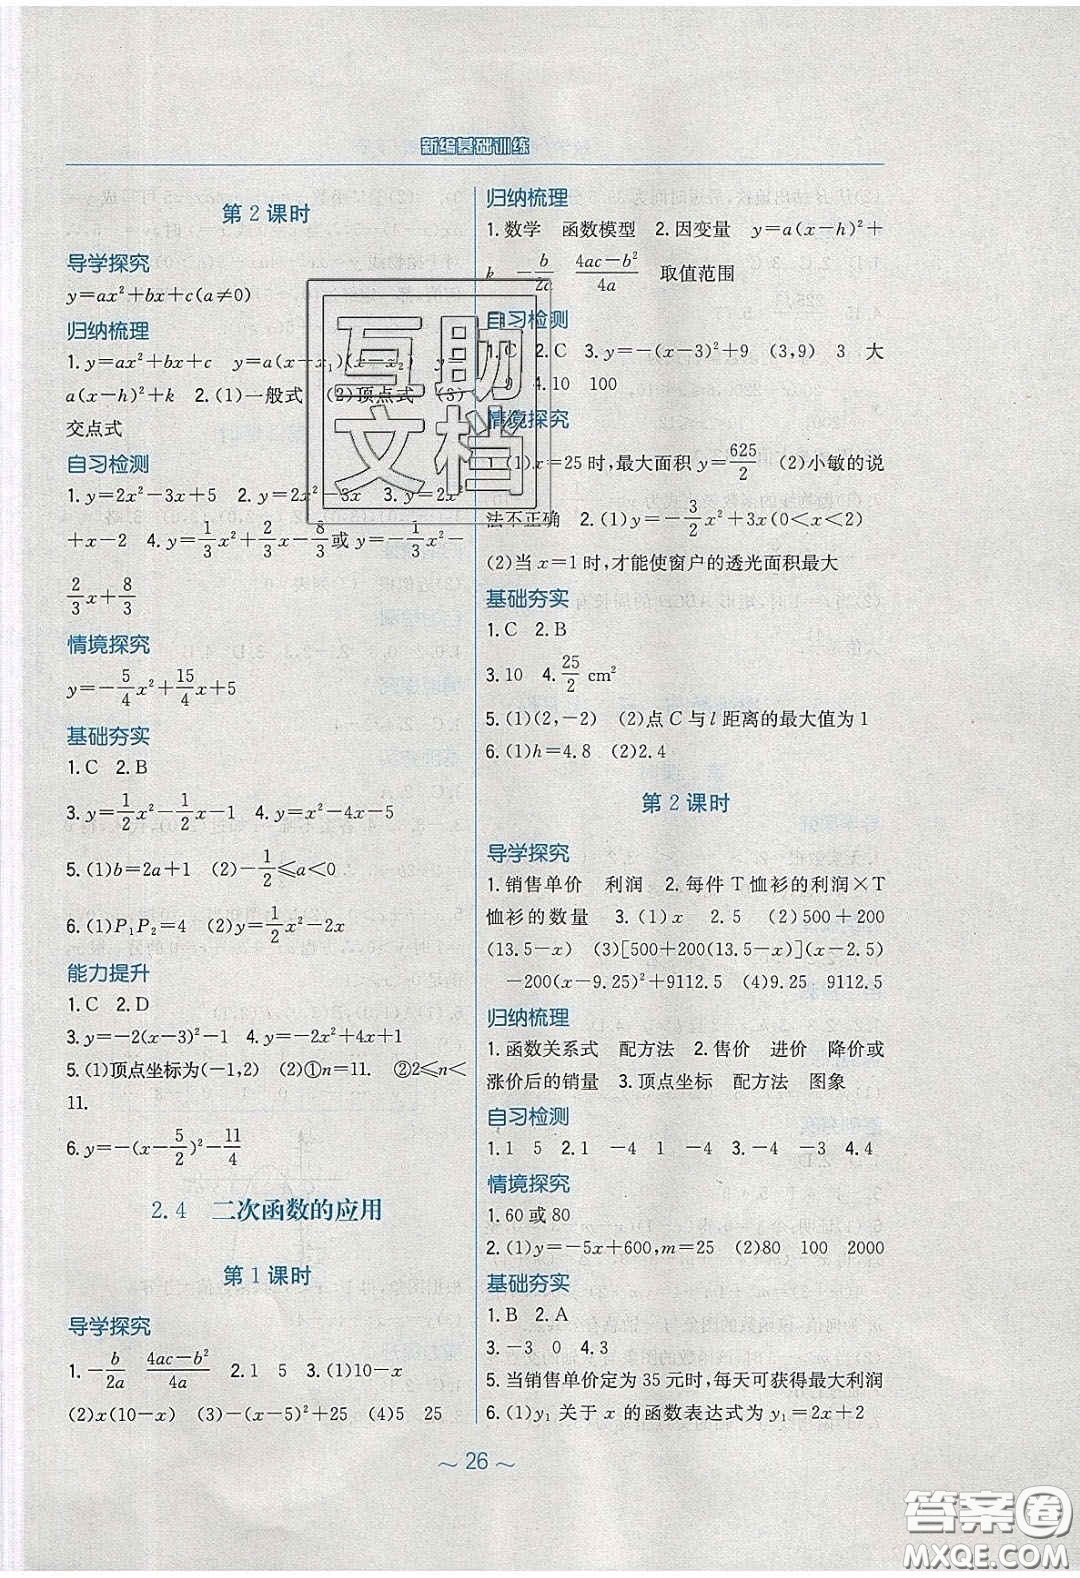 新编基础训练
第2课时
导学探究
y=ax²+bx+c(a≠0)
归纳梳理
1.y=ax²+bx+c　y=a(x-x₁)(x-x₂)　y=
a(x-h)²+k　2.(1)一般式　(2)顶点式　(3)
交点式
自习检测
1.y=2x²-3x+5　2.y=2x²-3x　3.y=2x²
+x-2　4.y=1/3x²+2/3x-8/3或y=-1/3x²-
2/3x+8/3
情境探究
y=-5/4x²+15/4x+5
基础夯实
1.C　2.B
3.y=1/2x²-1/2x-1　4.y=x²-4x-5
5.(1)b=2a+1　(2)-1/2≤a<0
6.(1)P₁P₂=4　(2)y=1/2x²-2x
能力提升
1.C　2.D
3.y=-2(x-3)²-1　4.y=-2x²+4x+1
5.(1)顶点坐标为(-1,2)　(2)①n=11.　②2≤n<
11.
6.y=-(x-5/2)²-11/4
2.4　二次函数的应用
第1课时
导学探究
1.-b/2a　4ac-b²/4a　2.1　5　3.(1)10-x
(2)x(10-x)　(3)-(x-5)²+25　(4)5　25
归纳梳理
1.数学　函数模型　2.因变量　y=a(x-h)²+
k　-b/2a　4ac-b²/4a　取值范围
自习检测
1.C　2.C　3.y=-(x-3)²+9　(3,9)　3　大
9　4.10　100
情境探究
1.(1)x=25时,最大面积y=625/2　(2)小敏的说
法不正确　2.(1)y=-3/2x²+3x(0<x<2)
(2)当x=1时,才能使窗户的透光面积最大
基础夯实
1.C　2.B
3.10　4.25/2 cm²
5.(1)(2,-2)　(2)点C与l距离的最大值为1
6.(1)h=4.8　(2)2.4
第2课时
导学探究
1.销售单价　利润　2.每件T恤衫的利润×T
恤衫的数量　3.(1)x　2.5　(2)500+200
(13.5-x)　(3)[500+200(13.5-x)](x-2.5)
-200(x-9.25)²+9112.5　(4)9.25　9112.5
归纳梳理
1.函数关系式　配方法　2.售价　进价　降价或
涨价后的销量　3.顶点坐标　配方法　图象
自习检测
1.1　5　2.1　-4　1　-4　3.-4　-3　4.4
情境探究
1.60或80
2.(1)y=-5x+600,m=25　(2)80　100　2000
基础夯实
1.B　2.A
3.-3　0　4.3
5.当销售单价定为35元时,每天可获得最大利润
6.(1)y₁关于x的函数表达式为y₁=2x+2
~ 26 ~
互助
文档
答案圈
MXQE.COM